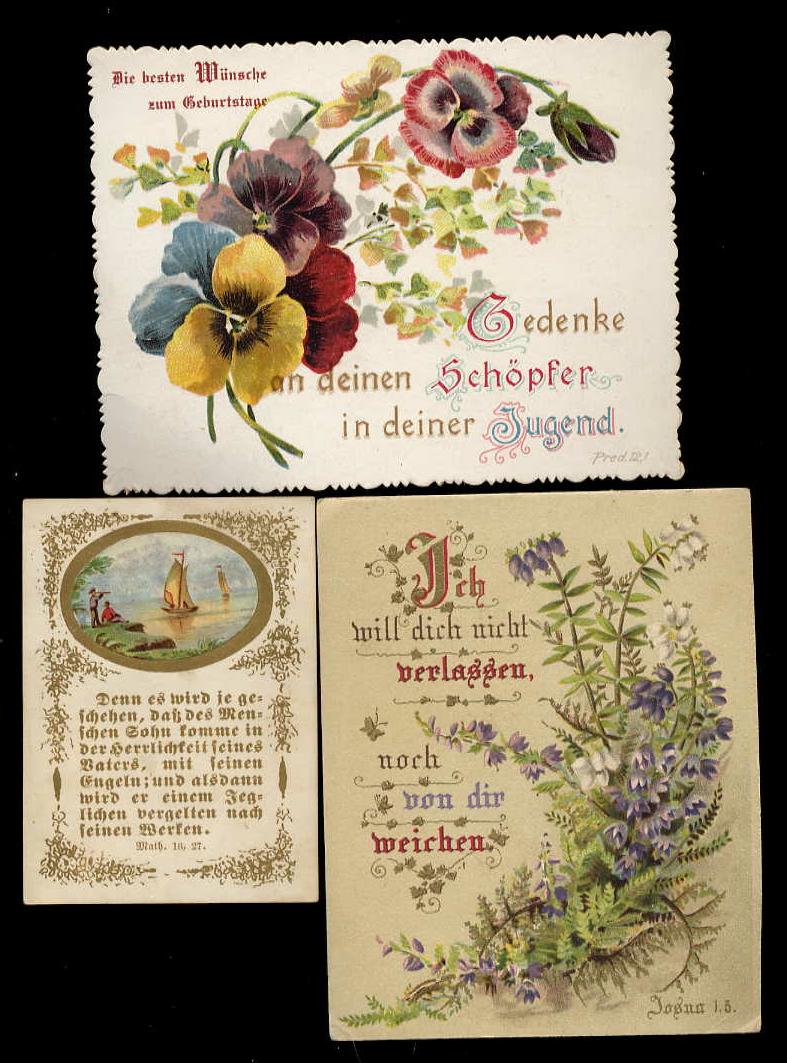 Die besten Wünsche
zum Geburtstage
Gedenke
an deinen Schöpfer
in deiner Jugend.
Pred. 12,1
Denn es wird je ge-
schehen, daß des Men-
schen Sohn komme in
der Herrlichkeit seines
Vaters, mit seinen
Engeln; und alsdann
wird er einem Jeg-
lichen vergelten nach
seinen Werken.
Math. 16, 27.
Ich
will dich nicht
verlassen,
noch
von dir
weichen.
Josua 1.5.